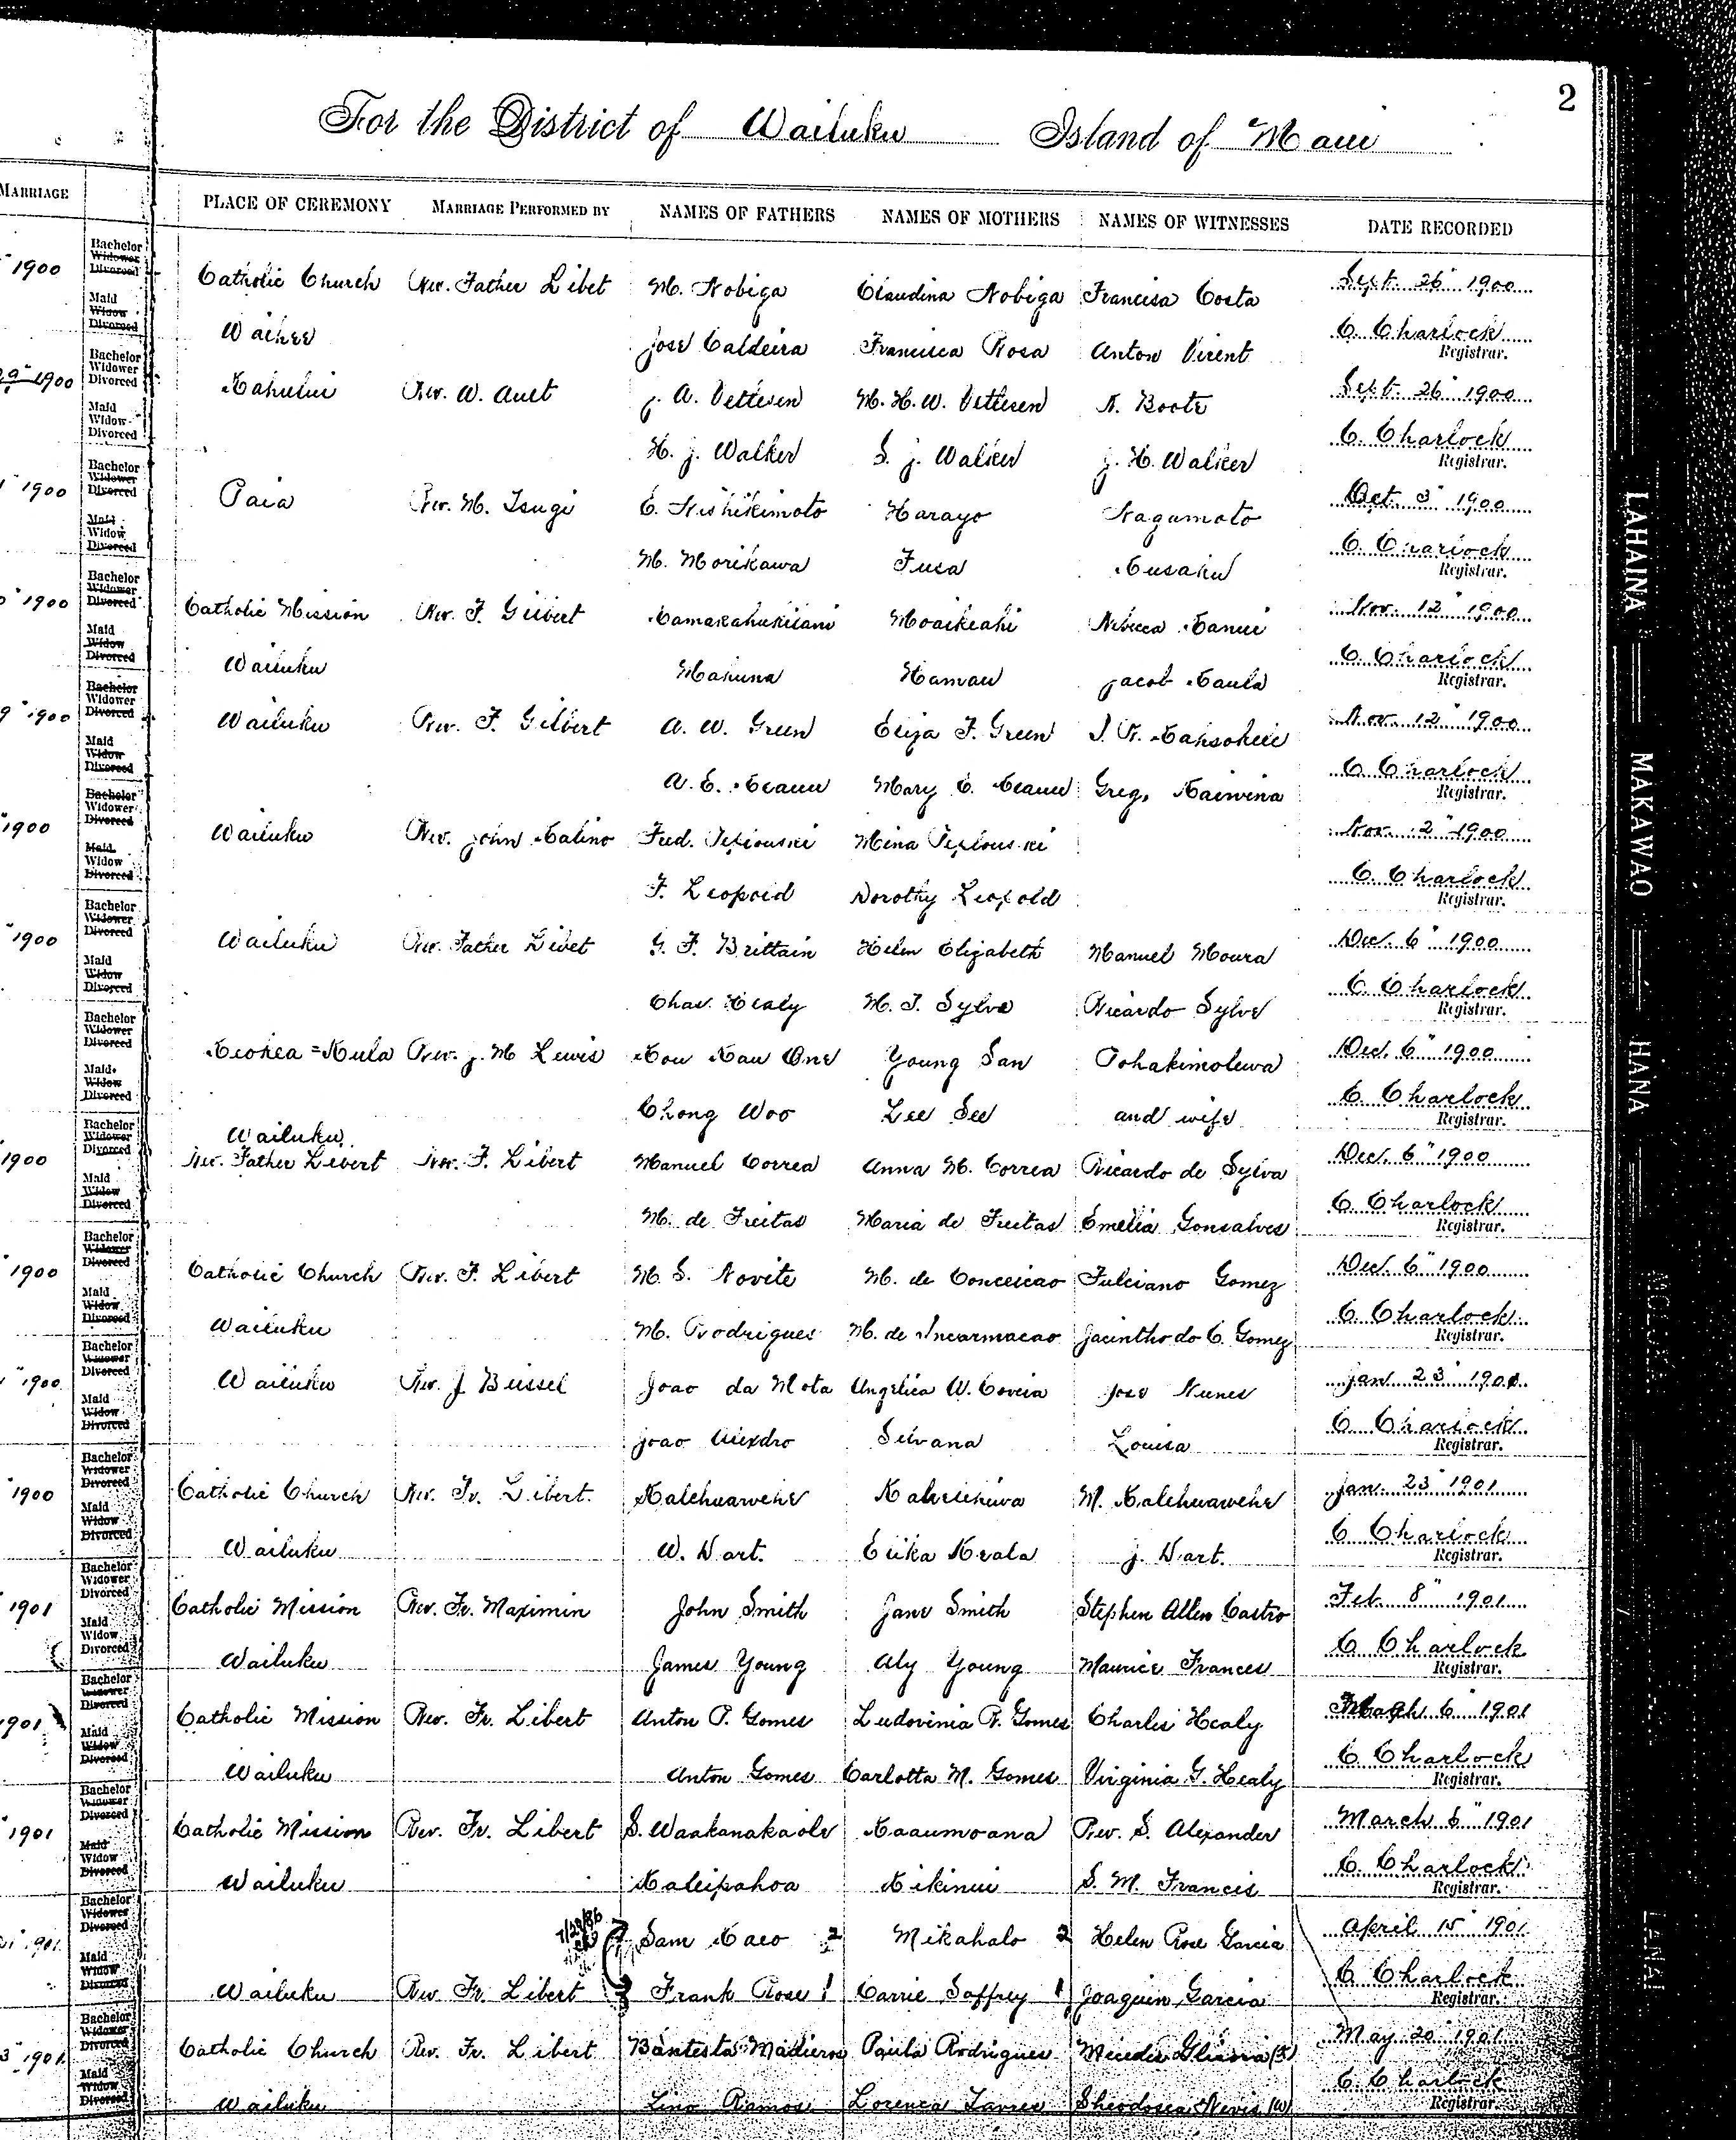 2
For the District of Wailuku Island of Maui
MARRIAGE PLACE OF CEREMONY MARRIAGE PERFORMED BY NAMES OF FATHERS NAMES OF MOTHERS NAMES OF WITNESSES DATE RECORDED
1900 Bachelor Widower Divorced Catholic Church Rev. Father Libet M. Nobiga Claudina Nobiga Francisa Costa Sept. 26" 1900
Maid Widow Divorced Waihee Jose Caldeira Francisca Rosa Anton Virent C. Charlock
Registrar.
29" 1900 Bachelor Widower Divorced Kahului Rev. W. Ault J. A. Vettesen M. H. W. Vettesen N. Boote Sept. 26" 1900
Maid Widow Divorced H. J. Walker S. J. Walker J. H. Walker C. Charlock
Registrar.
1900 Bachelor Widower Divorced Paia Rev. M. Tsugi C. Nishikimoto Harayo Nagamoto Oct. 3" 1900
Maid Widow Divorced M. Morikawa Fusa Kusaku C. Charlock
Registrar.
1900 Bachelor Widower Divorced Catholic Mission Rev. F. Gilbert Kamakahukilani Moaikeahi Rebecca Kanui Nov. 12" 1900
Maid Widow Divorced Wailuku Mahuna Hamau Jacob Kaula C. Charlock
Registrar.
9" 1900 Bachelor Widower Divorced Wailuku Rev. F. Gilbert A. W. Green Eliza F. Green Nov. 12" 1900
Maid Widow Divorced A. E. Mary E. Greg. Kaiwina C. Charlock
Registrar.
1900 Bachelor Widower Divorced Wailuku Rev. John Kalino Fred. Mina Nov. 2" 1900
Maid Widow Divorced F. Leopold Dorothy Leopold C. Charlock
Registrar.
1900 Bachelor Widower Divorced Wailuku Rev. Father Libet G. F. Brittain Helen Elizabeth Manuel Moura Dec. 6" 1900
Maid Widow Divorced Chas. Healy M. T. Sylva Ricardo Sylva C. Charlock
Registrar.
Bachelor Widower Divorced Keokea = Kula Rev. J. M Lewis Kou Kau One Young San Pohakimolewa Dec. 6" 1900
Maid Widow Divorced Chong Woo Lee See and wife C. Charlock
Registrar.
Wailuku
1900 Bachelor Widower Divorced Rev. Father Libert Rev. F. Libert Manuel Correa Anna M. Correa Ricardo de Sylva Dec. 6" 1900
Maid Widow Divorced M. de Freitas Maria de Freitas Emelia Gonsalves C. Charlock
Registrar.
1900 Bachelor Widower Divorced Catholic Church Rev. F. Libert M. S. Novite M. de Conceicao Fulciano Gomez Dec. 6" 1900
Maid Widow Divorced Wailuku M. Rodrigues M. de Incarmacao Jacintho do C. Gomez C. Charlock
Registrar.
1900 Bachelor Widower Divorced Wailuku Rev. J Beissel Joao da Mota Angelica W. Correia Jose Nunes Jan 23" 1901
Maid Widow Divorced Joao Alexdro Silvana Louisa C. Charlock
Registrar.
1900 Bachelor Widower Divorced Catholic Church Rev. Fr. Libert. Kalehuawehe M. Kalehuawehe Jan. 23" 1901
Maid Widow Divorced Wailuku W. Hart. Erika Keala J. Hart. C. Charlock
Registrar.
1901 Bachelor Widower Divorced Catholic Mission Rev. Fr. Maximin John Smith Jane Smith Stephen Allen Castro Feb. 8" 1901
Maid Widow Divorced Wailuku James Young Aly Young Maurice Frances C. Charlock
Registrar.
1901 Bachelor Widower Divorced Catholic Mission Rev. Fr. Libert Anton P. Gomes Ludovinia R. Gomes Charles Healy March 6" 1901
Maid Widow Divorced Wailuku Anton Gomes Carlotta M. Gomes Virginia G. Healy C. Charlock
Registrar.
1901 Bachelor Widower Divorced Catholic Mission Rev. Fr. Libert S. Waakanakaole Kaaumoana Rev. S. Alexander March 6" 1901
Maid Widow Divorced Wailuku Kaleipahoa Kikinui S. M. Francis C. Charlock
Registrar.
1901 Bachelor Widower Divorced 7/29/86 Sam Kaeo 2 Mikahalo 2 Helen Rose Garcia April 15" 1901
Maid Widow Divorced Wailuku Rev Fr. Libert Frank Rose 1 Carrie Saffrey 1 Joaquin Garcia C. Charlock
Registrar.
3" 1901 Bachelor Widower Divorced Catholic Church Rev. Fr. Libert Bantesta Madieros Paula Rodrigues May 20" 1901
Maid Widow Divorced Wailuku Lino Ramos Lorenca Tavres Sheodosea Nevis (w) C. Charlock
Registrar.
LAHAINA
MAKAWAO
HANA
MOLOKAI
LANAI